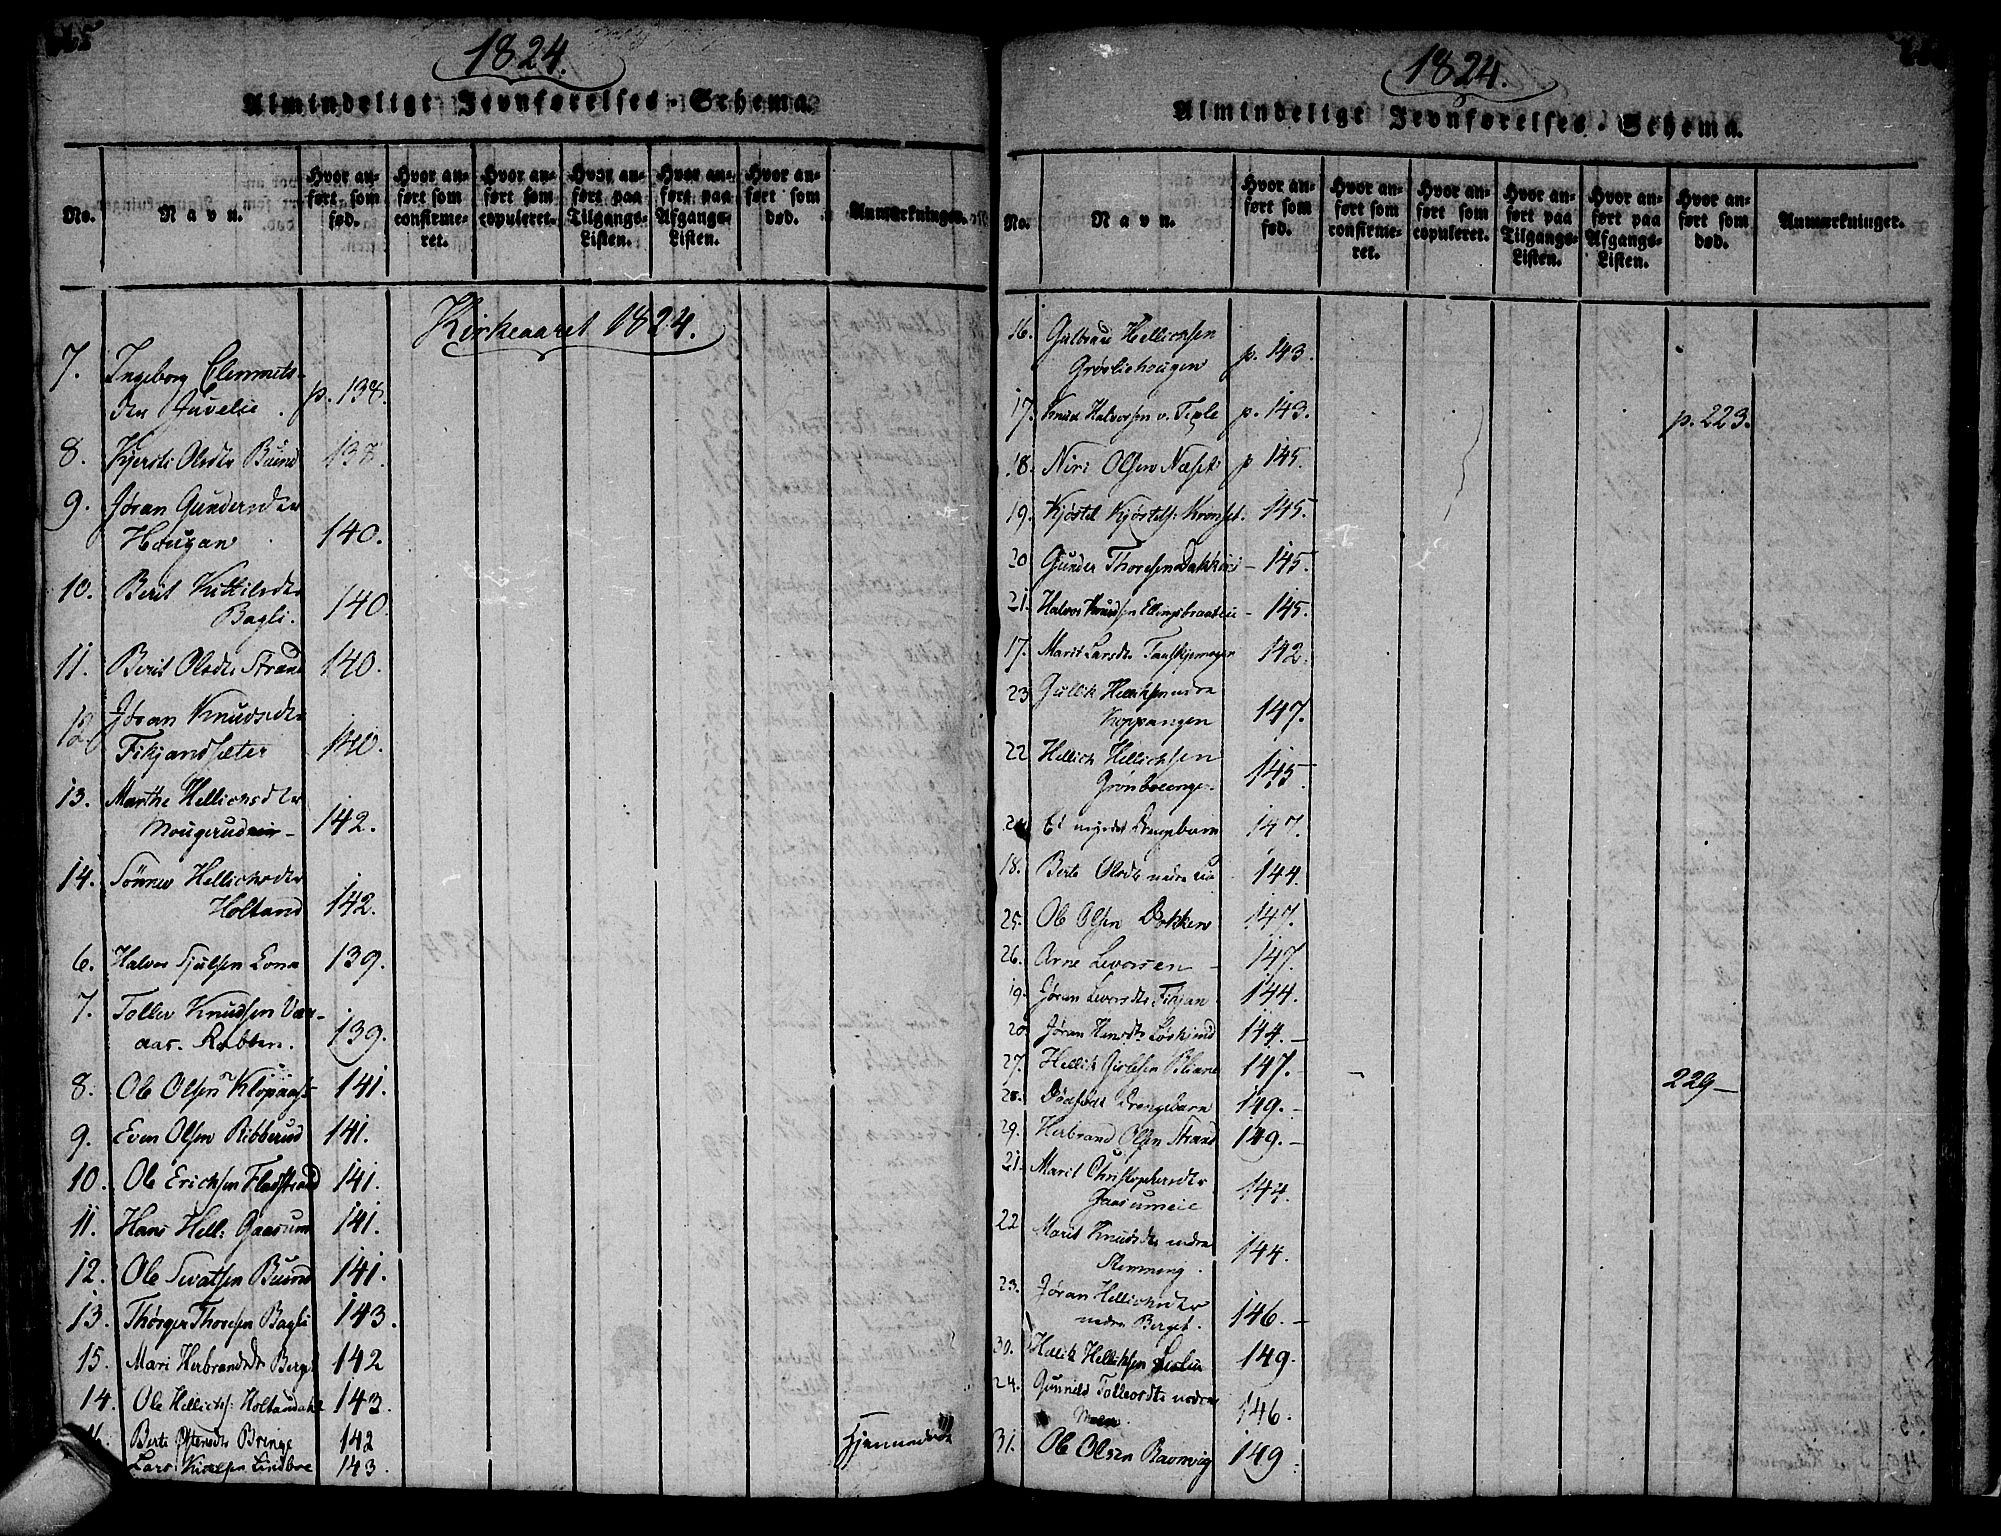 1824.
Almindeligt Jevnførelses-Schema.
No.
Navn.
Hvor an-
ført som
fød.
Hvor an-
ført som
confirme-
ret.
Hvor an-
ført som
copuleret.
Hvor an-
ført paa
Tilgangs-
Listen.
Hvor an-
ført paa
Afgangs-
Listen.
Hvor an-
ført som
død.
Anmærkninger.
Kirkeaaret 1824.
7. Ingeborg Clemmets-
dtr Juvelie. p. 138.
8. Kjersti Olsdtr Buind 138.
9. Jøran Gundersdtr
Hougan 140.
10. Berit Kittilsdtr
Bagli. 140.
11. Berit Olsdtr Strand 140.
12. Jøran Knudsdtr
Fikjandsæter 140.
13. Marthe Hellichsdtr
Mougerudeie - 142.
14. Sønnev Hellichsdtr
Holtand 142.
6. Halvor Sjulsen Lona 139.
7. Tollev Knudsen Vær-
aas. Rabben. 139.
8. Ole Olsen Klopaas 141.
9. Even Olsen Ribberud 141.
10. Ole Erichsen Fladstrand 141.
11. Hans Hell: Gaasum 141.
12. Ole Sevatsen Buind 141.
13. Thorger Thoresen Bagli 143.
15. Mari Herbrandsdtr Berget 142
14. Ole Hellichs: Holtandahl 143.
16. Berte Østensdtr Bringe 142
Lars Lindboe 143.
1824.
Almindeligt Jevnførelses-Schema.
No.
Navn.
Hvor an-
ført som
fød.
Hvor an-
ført som
confirme-
ret.
Hvor an-
ført som
copuleret.
Hvor an-
ført paa
Tilgangs-
Listen.
Hvor an-
ført paa
Afgangs-
Listen.
Hvor an-
ført som
død.
Anmærkninger.
16. Gulbrand Hellichsen
Grøsliehougen p. 143.
17. Knud Halvorsen v. Teple p. 143. p. 223.
18. Niri Olsen Næset p 145.
19. Kjøstel Kjøstels: Kronset. 145.
20 Gunder Thoresen Dokken - 145.
21. Halvor Knudsen Ellingsbraateie - 145.
17. Marit Larsdtr 142.
23 Gullik Hellichsen nedre
Koppangen 147.
22 Hellich Hellichsen
145.
24 Et myrdet Drengebarn 147.
18. Berte Olsdtr nedre Lia 144.
25. Ole Olsen Dokken 147.
26. Arne Levorsen - 147.
19. Jøran Levorsdtr Fikjan 144.
20. Jøran Hansdtr 144. -
27. Hellik 147. - 229 -
28. Dødfødt Drengebarn 149. -
29. Herbrand Olsen Strand 149. -
21. Marit Christophersdtr
Gaasumeie 144.
22 Marit Knudsdtr nedre
Stemmeng. 144.
23. Jøran Hellichsdtr
nedre Berget. 146. -
30. Hellik Hellichsen 149.
24. Gunnild Tollevsdtr nedre
Moen. 146.
31. Ole Olsen Ravnvig 149.